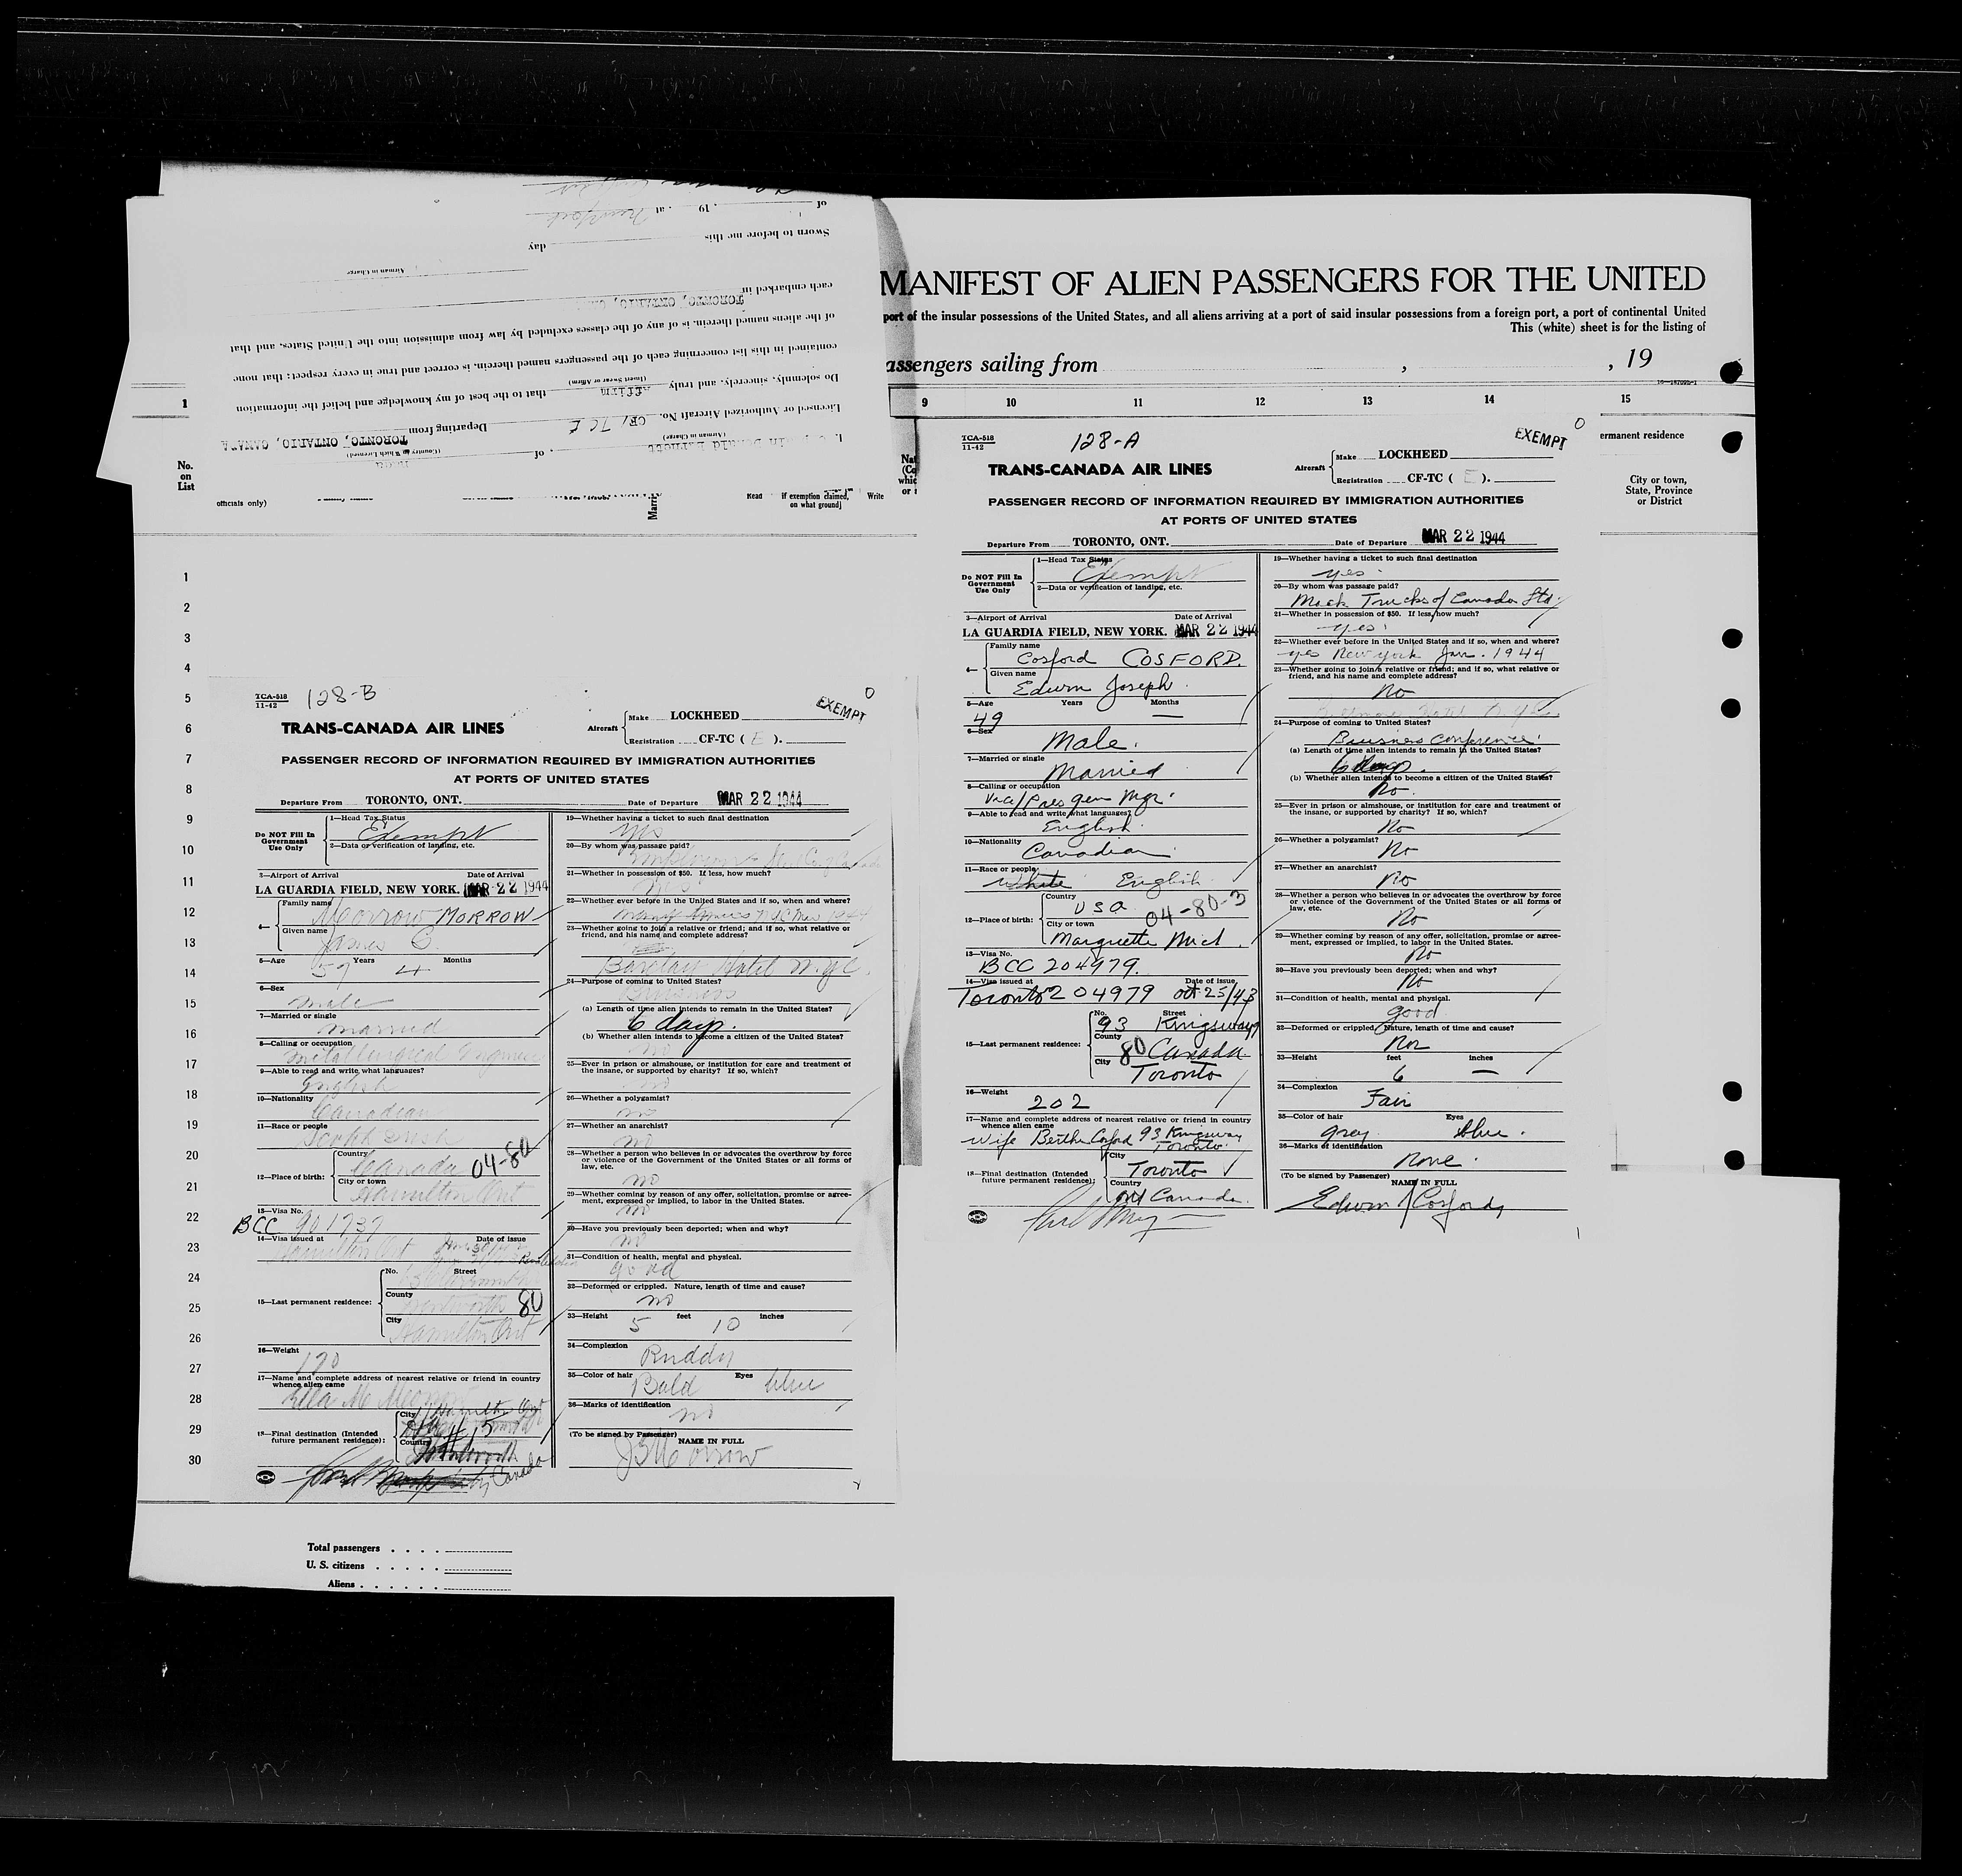 of , 19 . at New York
Sworn to before me this day
Airman in Charge
each embarked in
TORONTO, ONTARIO,
of the aliens named therein, is of any of the classes excluded by law from admission into the United States, and that
contained in this list concerning each of the passengers named therein, is correct and true in every respect; that none
(Insert Swear or Affirm)
Do solemnly, sincerely, and truly affirm that to the best of my knowledge and belief the information
Licensed or Authorized Aircraft No. CF, TC E Departing from
TORONTO, ONTARIO, CANADA
(Airman in Charge) (Country in Which Licensed)
1
No.
on
List
officials only)
Read if exemption claimed, Write
on what ground
MANIFEST OF ALIEN PASSENGERS FOR THE UNITED
port of the insular possessions of the United States, and all aliens arriving at a port of said insular possessions from a foreign port, a port of continental United
This (white) sheet is for the listing of
assengers sailing from , , 19
9 10 11 12 13 14 15
ermanent residence
City or town,
State, Province
or District
1
2
3
4
5
6
7
8
9
10
11
12
13
14
15
16
17
18
19
20
21
22
23
24
25
26
27
28
29
30
TCA-518
11-42
128-B
EXEMPT
0
TRANS-CANADA AIR LINES
Aircraft Make LOCKHEED
Registration CF-TC ( E ).
PASSENGER RECORD OF INFORMATION REQUIRED BY IMMIGRATION AUTHORITIES
AT PORTS OF UNITED STATES
Departure From TORONTO, ONT. Date of Departure MAR 22 1944
Do NOT Fill In
Government
Use Only
1—Head Tax Status
Exempt
2—Data or verification of landing, etc.
3—Airport of Arrival Date of Arrival
LA GUARDIA FIELD, NEW YORK. MAR 22 1944
4— Family name
Morrow MORROW
Given name
James C.
5—Age Years Months
59 4
6—Sex
male
7—Married or single
married
8—Calling or occupation
Metallurgical Engineer
9—Able to read and write, what languages?
English
10—Nationality
Canadian
11—Race or people
Scotch Irish
12—Place of birth: Country
Canada 04-80
City or town
Hamilton Ont
13—Visa No.
BCC 901737
14—Visa issued at Date of issue
Hamilton Ont
15—Last permanent residence: No. Street
County
Wentworth 80
City
Hamilton Ont
16—Weight
170
17—Name and complete address of nearest relative or friend in country
whence alien came
Ella M
18—Final destination (Intended
future permanent residence): City
Country
Canada
19—Whether having a ticket to such final destination
yes
20—By whom was passage paid?
21—Whether in possession of $50. If less, how much?
yes
22—Whether ever before in the United States and if so, when and where?
many times NYC Mar 1944
23—Whether going to join a relative or friend; and if so, what relative or
friend, and his name and complete address?
Barclay Hotel N.Y.C.
24—Purpose of coming to United States?
Business
(a) Length of time alien intends to remain in the United States?
6 days.
(b) Whether alien intends to become a citizen of the United States?
no
25—Ever in prison or almshouse, or institution for care and treatment of
the insane, or supported by charity? If so, which?
no
26—Whether a polygamist?
no
27—Whether an anarchist?
no
28—Whether a person who believes in or advocates the overthrow by force
or violence of the Government of the United States or all forms of
law, etc.
no
29—Whether coming by reason of any offer, solicitation, promise or agree-
ment, expressed or implied, to labor in the United States.
no
30—Have you previously been deported; when and why?
no
31—Condition of health, mental and physical.
good
32—Deformed or crippled. Nature, length of time and cause?
no
33—Height feet inches
5 10
34—Complexion
Ruddy
35—Color of hair Eyes
Bald blue
36—Marks of identification
no
(To be signed by Passenger)
NAME IN FULL
Total passengers . . . .
U. S. citizens . . . . .
Aliens . . . . . .
TCA-518
11-42
128-A
EXEMPT
0
TRANS-CANADA AIR LINES
Aircraft Make LOCKHEED
Registration CF-TC ( E ).
PASSENGER RECORD OF INFORMATION REQUIRED BY IMMIGRATION AUTHORITIES
AT PORTS OF UNITED STATES
Departure From TORONTO, ONT. Date of Departure MAR 22 1944
Do NOT Fill In
Government
Use Only
1—Head Tax Status
Exempt
2—Data or verification of landing, etc.
3—Airport of Arrival Date of Arrival
LA GUARDIA FIELD, NEW YORK. MAR 22 1944
4— Family name
Cosford COSFORD.
Given name
Edwin Joseph
5—Age Years Months
49 —
6—Sex
Male.
7—Married or single
Married
8—Calling or occupation
Vice/Pres gen Mgr.
9—Able to read and write, what languages?
English
10—Nationality
Canadian
11—Race or people
White English
12—Place of birth: Country
USA 04-80-3
City or town
Marquette Mich.
13—Visa No.
BCC 204979.
14—Visa issued at Date of issue
Toronto 204979 Oct 25/43
15—Last permanent residence: No. Street
93 Kingsway
County
80 Canada
City
Toronto
16—Weight
202
17—Name and complete address of nearest relative or friend in country
whence alien came
Wife Bertha Cosford 93 Kingsway
Toronto.
18—Final destination (Intended
future permanent residence): City
Toronto
Country
Canada.
19—Whether having a ticket to such final destination
yes
20—By whom was passage paid?
Mack Trucks of Canada Ltd.
21—Whether in possession of $50. If less, how much?
yes
22—Whether ever before in the United States and if so, when and where?
yes New York Jan. 1944
23—Whether going to join a relative or friend; and if so, what relative or
friend, and his name and complete address?
No
24—Purpose of coming to United States?
Business conference.
(a) Length of time alien intends to remain in the United States?
6 days.
(b) Whether alien intends to become a citizen of the United States?
No.
25—Ever in prison or almshouse, or institution for care and treatment of
the insane, or supported by charity? If so, which?
No
26—Whether a polygamist?
No
27—Whether an anarchist?
No
28—Whether a person who believes in or advocates the overthrow by force
or violence of the Government of the United States or all forms of
law, etc.
No
29—Whether coming by reason of any offer, solicitation, promise or agree-
ment, expressed or implied, to labor in the United States.
No
30—Have you previously been deported; when and why?
No
31—Condition of health, mental and physical.
good
32—Deformed or crippled. Nature, length of time and cause?
33—Height feet inches
6 —
34—Complexion
Fair
35—Color of hair Eyes
grey blue.
36—Marks of identification
None.
(To be signed by Passenger)
NAME IN FULL
Edwin J Cosford